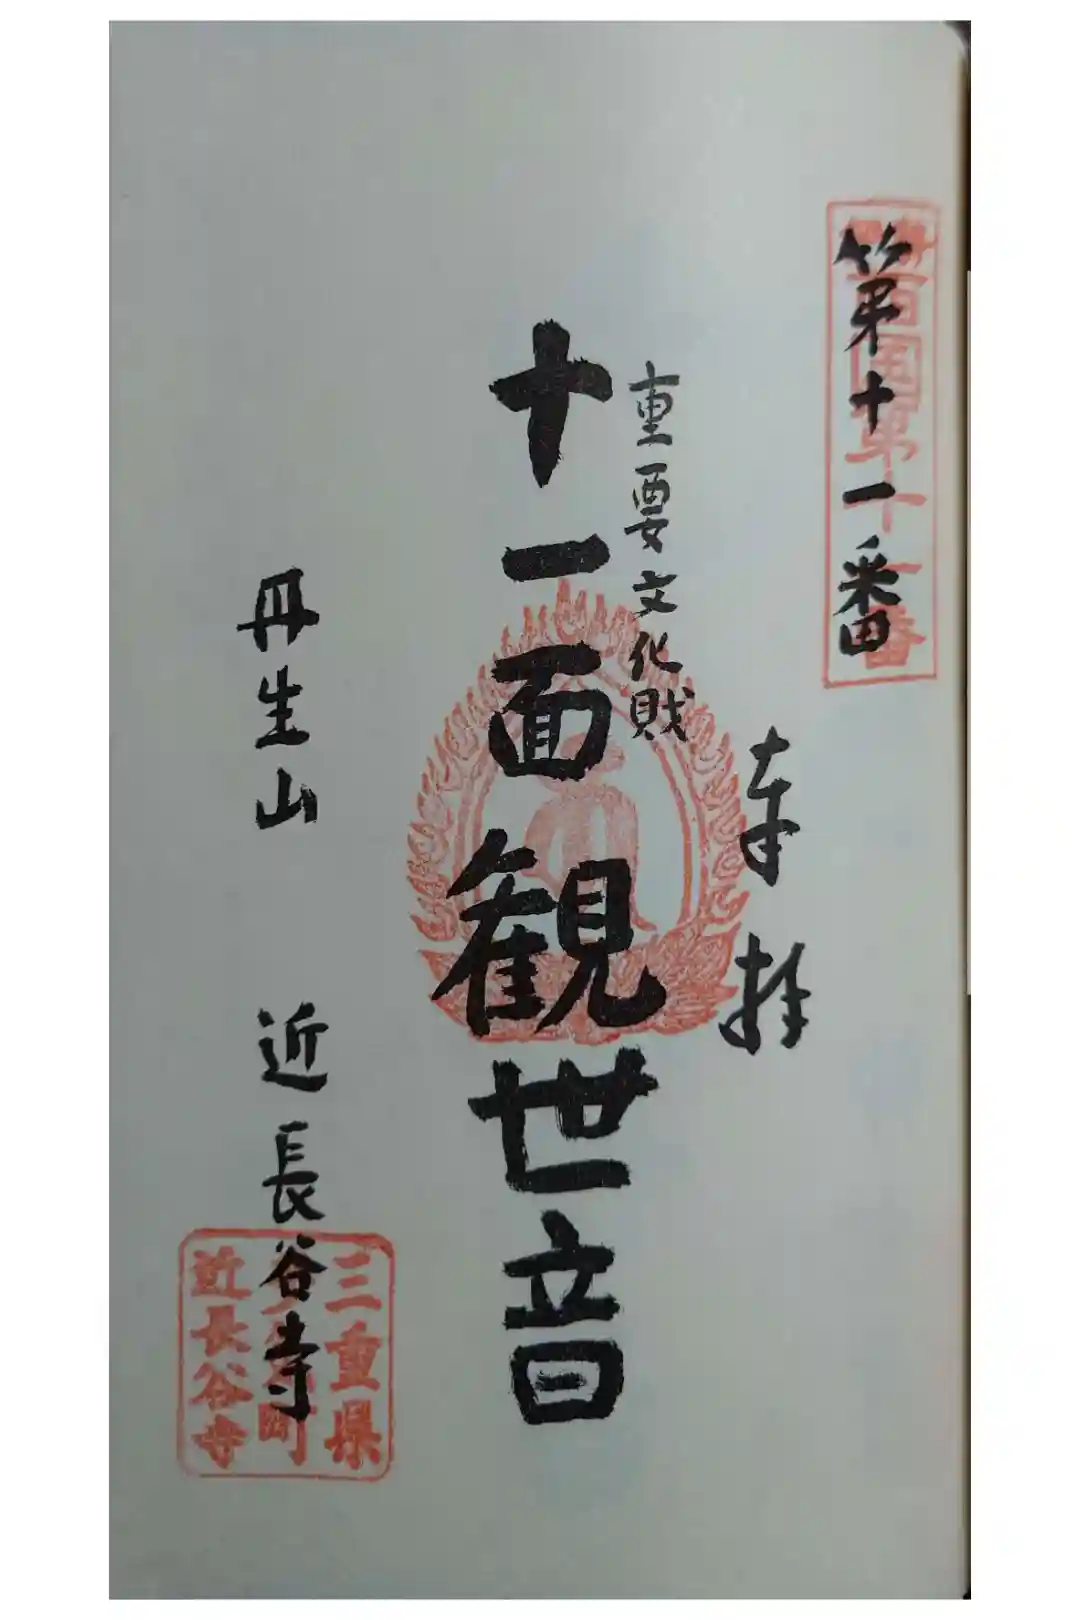 第十一番
奉拝
重要文化財
十一面観世音
丹生山 近長谷寺
西国第十一番
三重県
町
近長谷寺